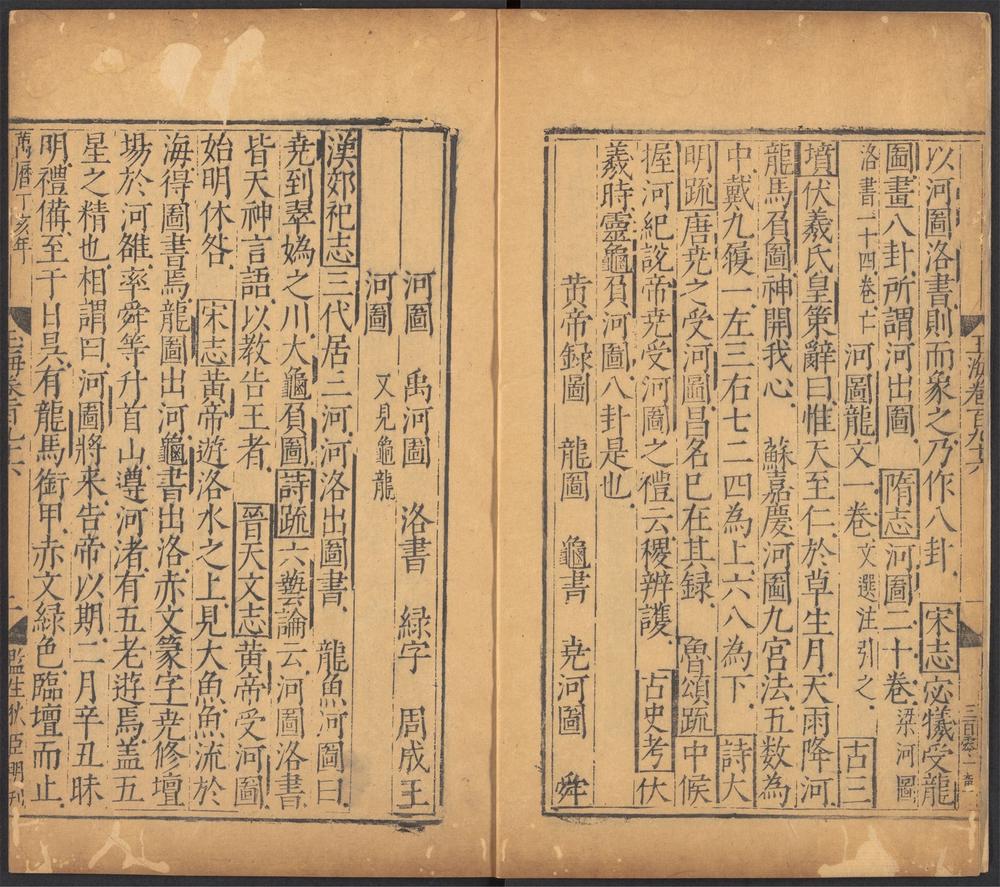 以河圖洛書則而象之乃作八卦 宋志宓犧受龍
圖畫八卦所謂河出圖 隋志河圖二十卷梁河圖
洛書二十四卷亡 河圖龍文一卷文選注引之 古三
墳伏羲氏皇策辭曰惟天至仁於草生月天雨降河
龍馬負圖神開我心 蘇嘉慶河圖九宮法五数為
中戴九履一左三右七二四為上六八為下 詩大
明疏唐尭之受河圖昌名巳在其録 魯頌疏中候
握河紀說帝尭受河圖之禮云稷辨護 古史考伏
羲時靈龜負河圖八卦是也
黄帝録圖 龍圖 龜書 尭河圖 舜
河圖 禹河圖 洛書 緑字 周成王
河圖 又見龜龍
漢郊祀志三代居三河河洛出圖書 龍魚河圖曰
尭到翠媯之川大龜負圖詩疏六藝論云河圖洛書
皆天神言語以教告王者 晉天文志黄帝受河圖
始明休咎 宋志黄帝遊洛水之上見大魚魚流於
海得圖書焉龍圖出河龜書出洛赤文篆字尭修壇
場於河雒率舜等升首山遵河渚有五老遊焉盖五
星之精也相謂曰河圖將来告帝以期二月辛丑昧
明禮備至于日昃有龍馬銜甲赤文緑色臨壇而止
萬曆丁亥年
玉海卷百九十六
監生狄亞明刊